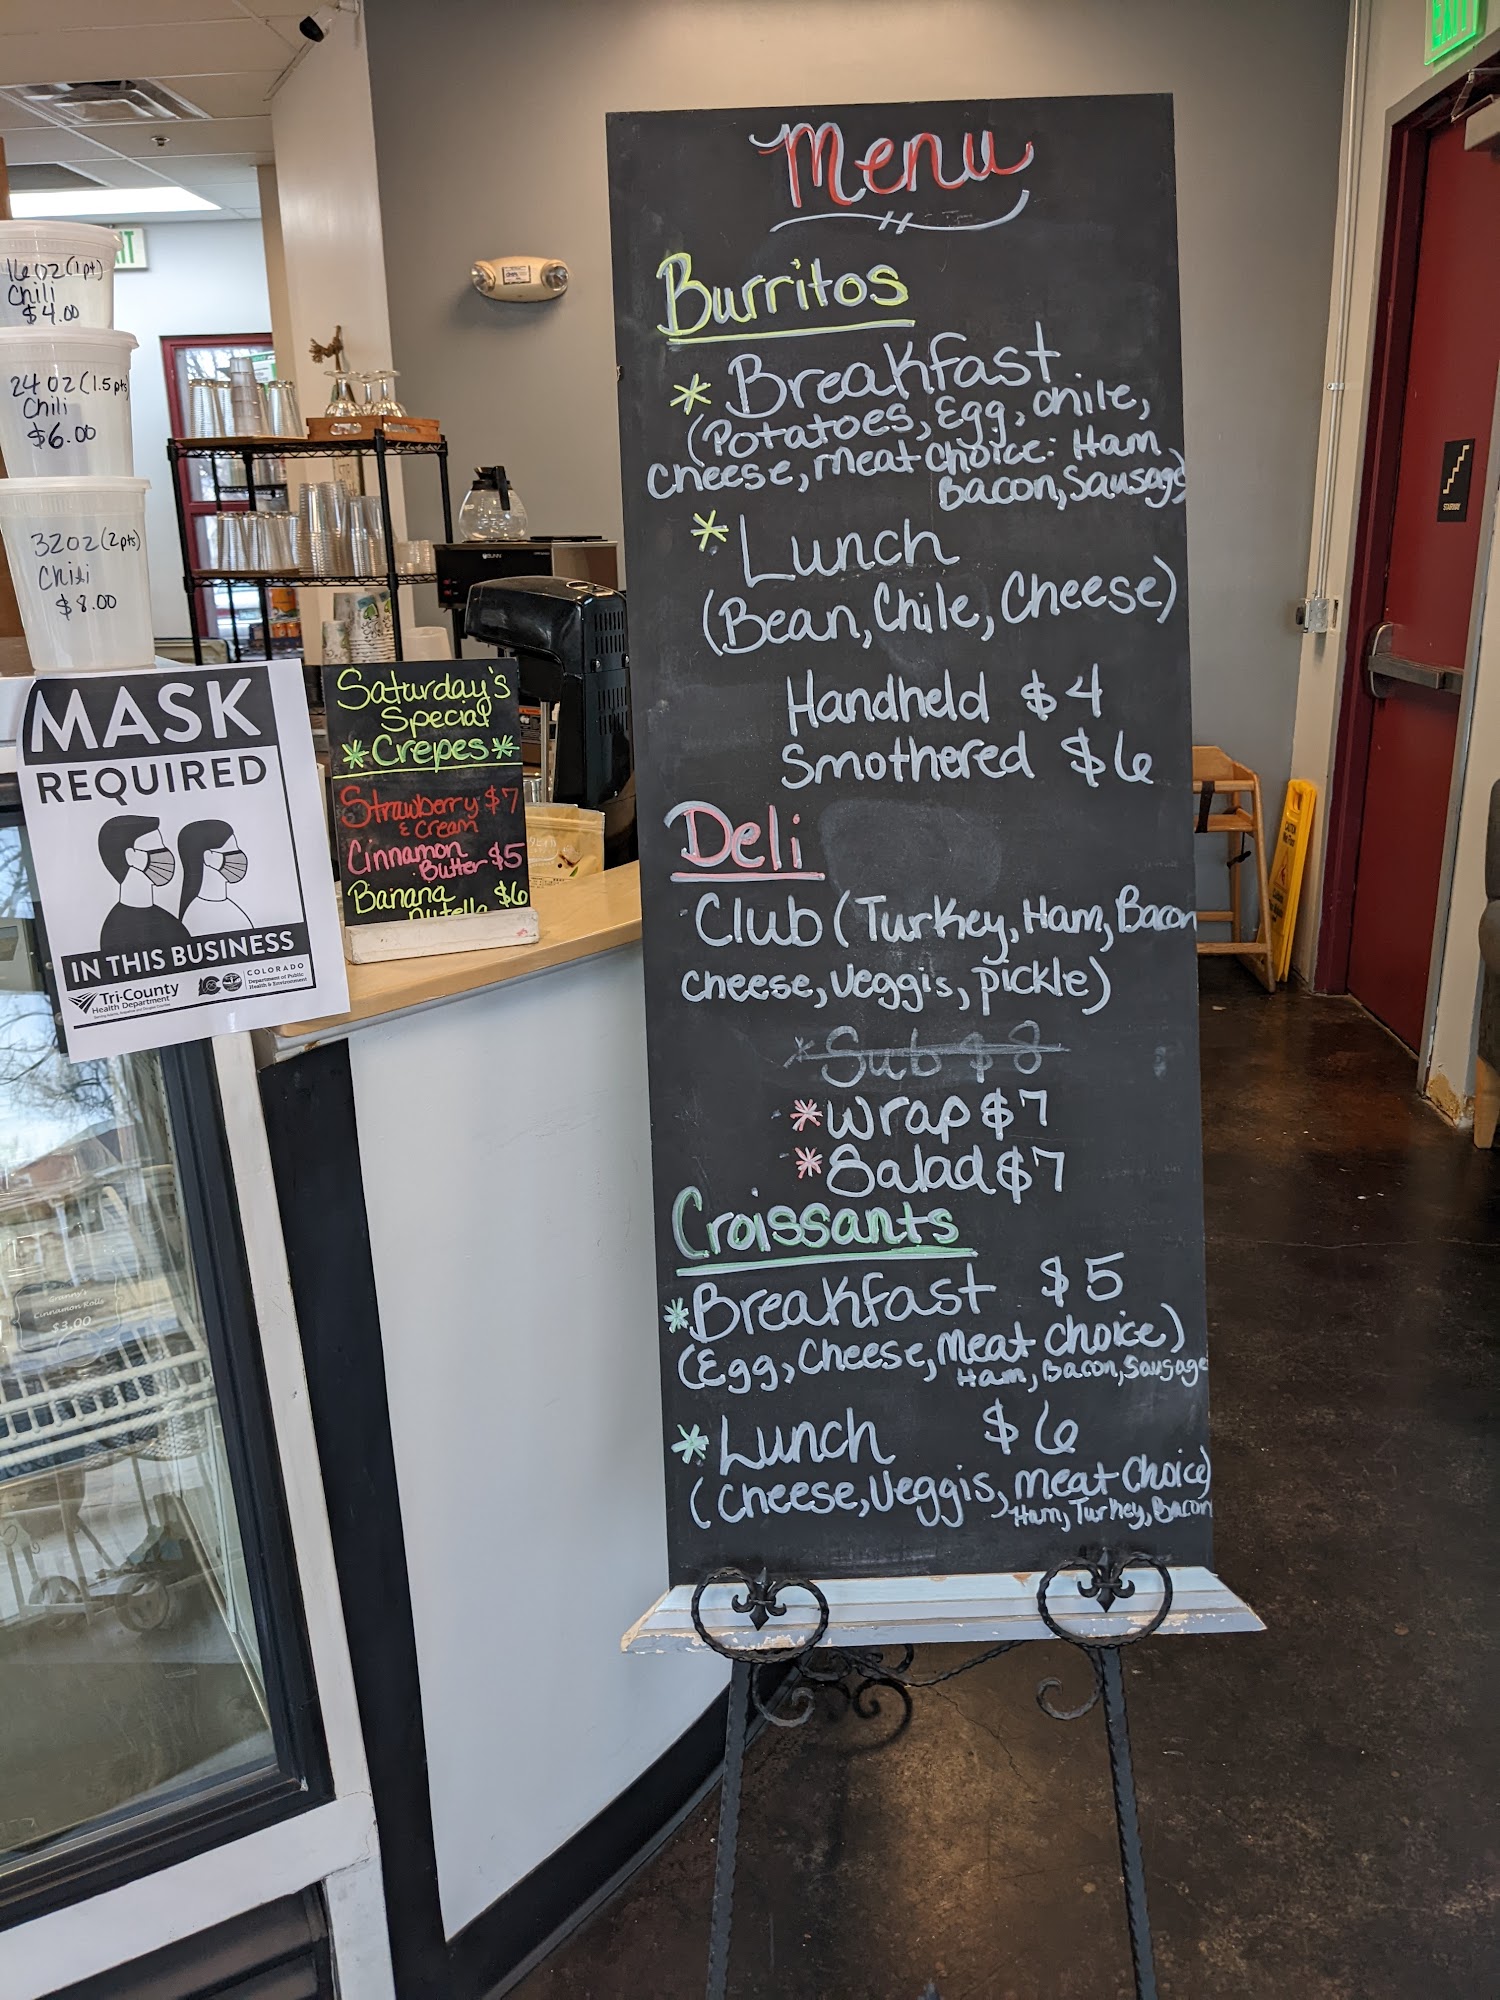 Menu
Burritos
* Breakfast
(Potatoes, Egg, chile,
Cheese, meat choice: Ham
Bacon, Sausage
* Lunch
(Bean, Chile, Cheese)
Handheld $4
Smothered $6
Deli
Club (Turkey, Ham, Bacon
cheese, veggis, pickle)
*Sub $8
*Wrap $7
*Salad $7
Croissants
*Breakfast $5
(Egg, Cheese, Meat choice)
Ham, Bacon, Sausage
*Lunch $6
(Cheese, Veggis, meat choice)
Ham, Turkey, Bacon
16oz (1pt)
Chili
$4.00
24oz (1.5pts
Chili
$6.00
32oz (2pts)
Chili
$8.00
MASK
REQUIRED
IN THIS BUSINESS
Tri-County
Health Department
COLORADO
Department of Public
Health & Environment
Saturday's
Special
*Crepes*
Strawberry $7
& Cream
Cinnamon
Butter $5
Banana $6
nutella
Granny's
Cinnamon Rolls
$3.00
EXIT
STAIRWAY
BUNN